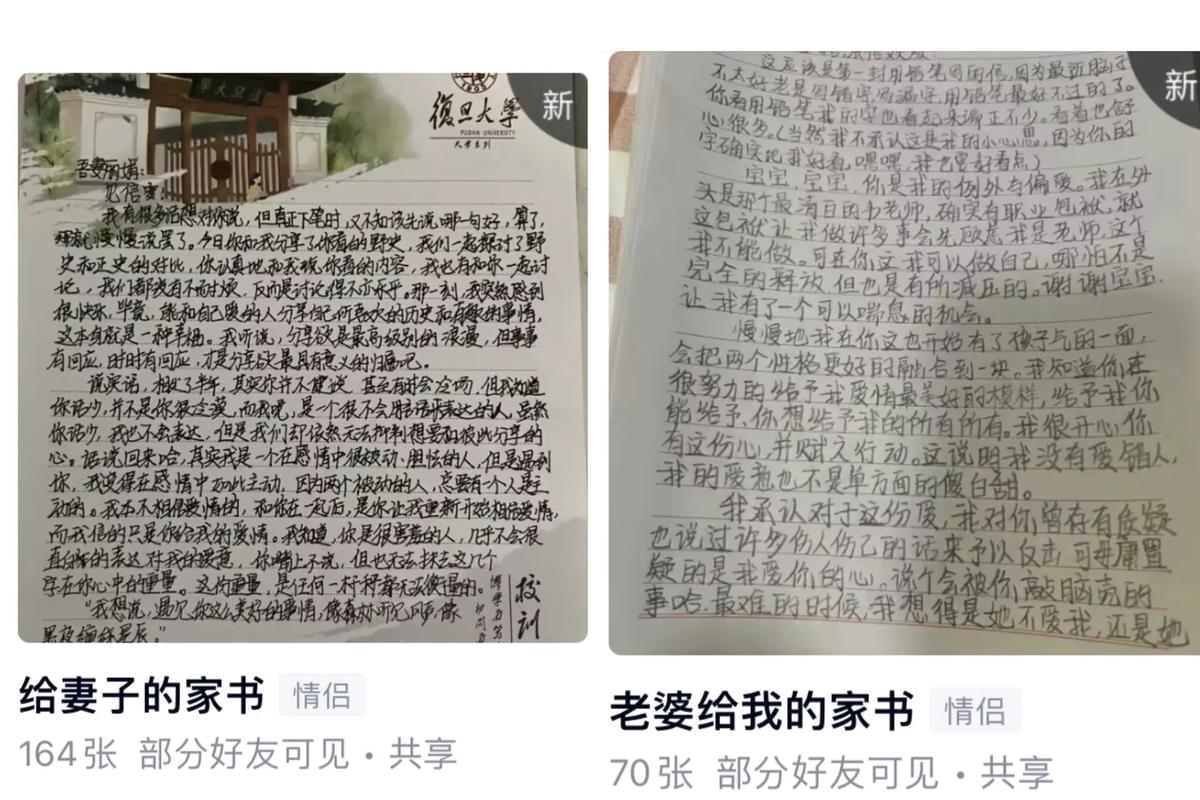 復旦大學
FUDAN UNIVERSITY
大學系列
新
吾妻丽娟：
见信安。
我有很多话想对你说，但真正下笔时，又不知该先说哪一句好，算了，
那就慢慢说罢了。今日你和我分享了你看的野史，我们一起探讨了野
史和正史的对比，你认真地和我说你看的内容，我也有和你一起讨
论，我们都没有不耐烦，反而是讨论得不亦乐乎。那一刻，我突然感到
很快乐，毕竟，能和自己爱的人分享自己所喜欢的历史和有趣的事情，
这本身就是一种幸福。我听说，分享欲是最高级别的浪漫，但事事
有回应，时时有回应，才是分享欲最具有意义的归宿吧。
说实话，相处了半年，其实你并不健谈，甚至有时会冷场，但我知道
你话少，并不是你很冷漠，而我呢，是一个很不会用话语表达的人，虽然
你话少，我也不会表达，但是我们却依然无法抑制想要和彼此分享的
心。话说回来哈，其实我是一个在感情中很被动、胆怯的人，但是遇到
你，我变得在感情中如此主动，因为两个被动的人，总要有一个人是主
动的。我本不相信爱情的，和你在一起后，是你让我重新开始相信爱情，
而我信的只是你给我的爱情。我知道，你是很害羞的人，几乎不会很
直白的表达对我的爱意，你嘴上不说，但也无法抹去这几个
字在你心中的重量。这份重量，是任何一杆秤都无法衡量的。
“我想说，遇见你这么美好的事情，像森林听见风声，像
黑夜缠绵星辰。”
校训
给妻子的家书 情侣
164张 部分好友可见·共享
新
这应该是第一封用铅笔写的信，因为最近脑子
不太好老是写错字写漏字，用铅笔最好不过的了。
你看用铅笔我的字也看起来端正不少。看着也舒
心很多。（当然我不承认这是我的小心思，因为你的
字确实比我好看，嘿嘿，我也要好看点）
宝宝，宝宝，你是我的例外与偏爱。我在外
头是那个最清白的书老师，确实有职业包袱，就
这包袱让我做许多事会先顾忌我是老师，这个
我不能做。可在你这我可以做自己，哪怕不是
完全的释放但也是有所减压的。谢谢宝宝，
让我有了一个可以喘息的机会。
慢慢地我在你这也开始有了孩子气的一面，
会把两个性格更好的融合到一块。我知道你在
很努力的给予我爱情最美好的模样，给予我你
能给予、你想给予我的所有所有。我很开心你
有这份心，并赋之行动。这说明我没有爱错人，
我的爱意也不是单方面的傻白甜。
我承认对于这份爱，我对你曾存有质疑
也说过许多伤人伤己的话来予以反击 可毋庸置
疑的是我爱你的心。说个会被你敲脑壳的
事哈，最难的时候，我想得是她不爱我，还是她
老婆给我的家书 情侣
70张 部分好友可见·共享